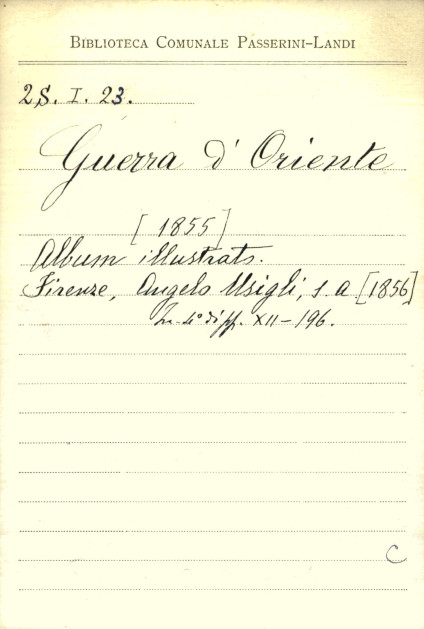 BIBLIOTECA COMUNALE PASSERINI-LANDI
2S. I. 23.
Guerra d'Oriente
[1855]
Album illustrato.
Firenze, Angelo Usigli, s. a [1856]
In 4° di pp. XII-196.
C